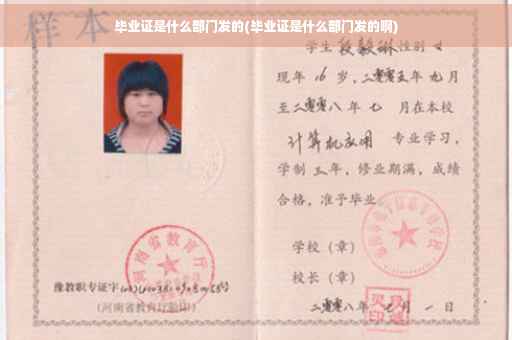 样本
毕业证是什么部门发的(毕业证是什么部门发的啊)
学生段毅琳性别女
现年16岁，二零零五年九月
至二零零八年七 月在本校
计算机应用 专业学习，
学制三年，修业期满，成绩
合格，准予毕业
学校（章）
校长（章）
二零零八年七月一日
河南省教育厅
豫教职专证字
(河南省教育厅验印)